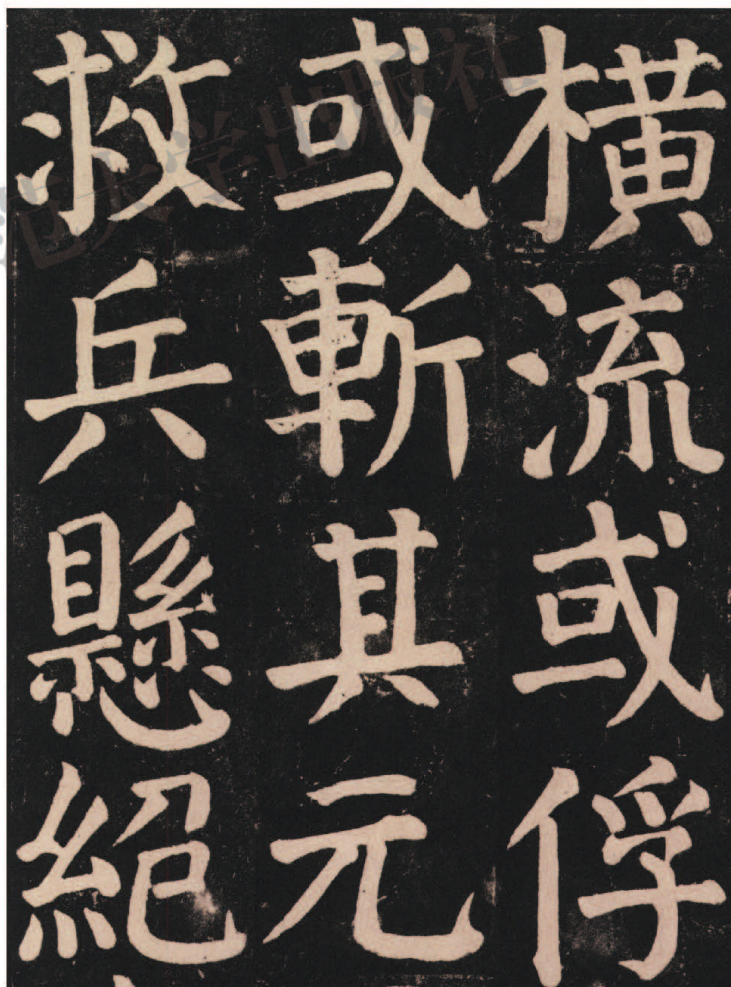 橫流或俘
或斬其元
救兵懸絕